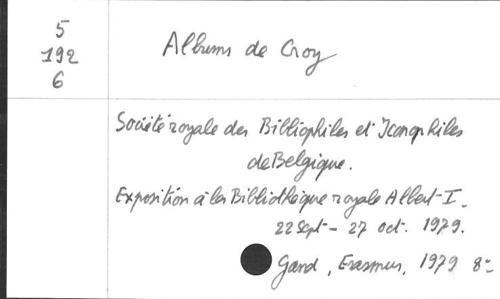 5
192
6
Albums de Croy
Société royale des Bibliophiles et Iconophiles
de Belgique.
Exposition à la Bibliothèque royale Albert-I.
22 sept - 27 oct. 1979.
Gand, Erasmus, 1979 8º